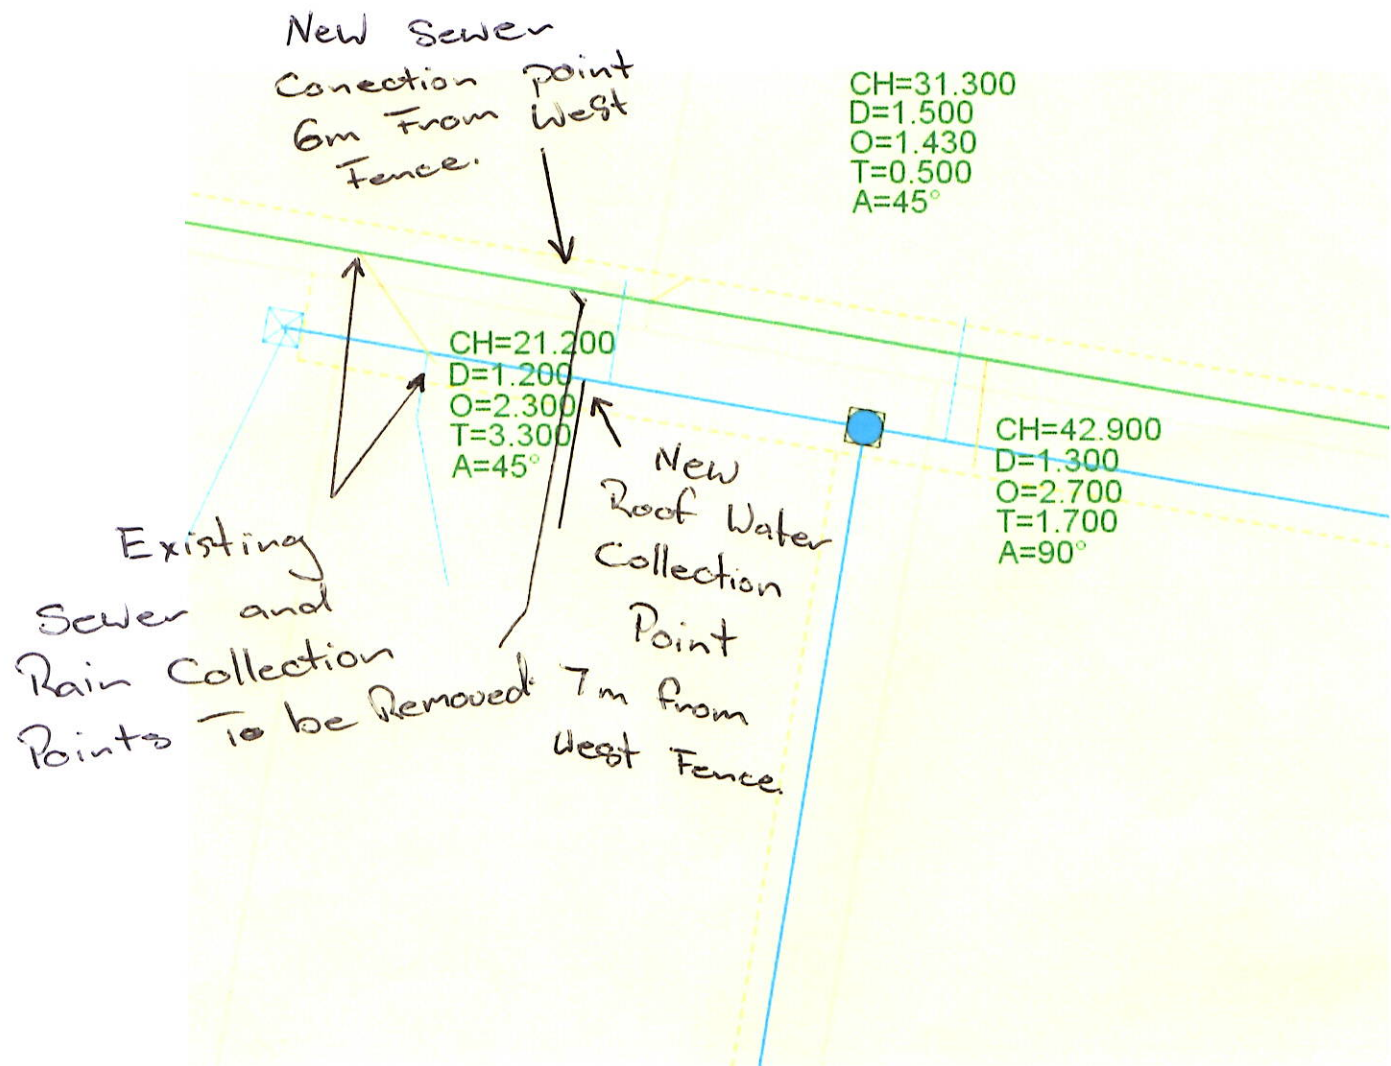 New Sewer
Conection point
6m From West
Fence.
CH=31.300
D=1.500
O=1.430
T=0.500
A=45°
CH=21.200
D=1.200
O=2.300
T=3.300
A=45°
CH=42.900
D=1.300
O=2.700
T=1.700
A=90°
New
Roof Water
Collection
Point
7m from
West Fence.
Existing
Sewer and
Rain Collection
Points To be Removed.